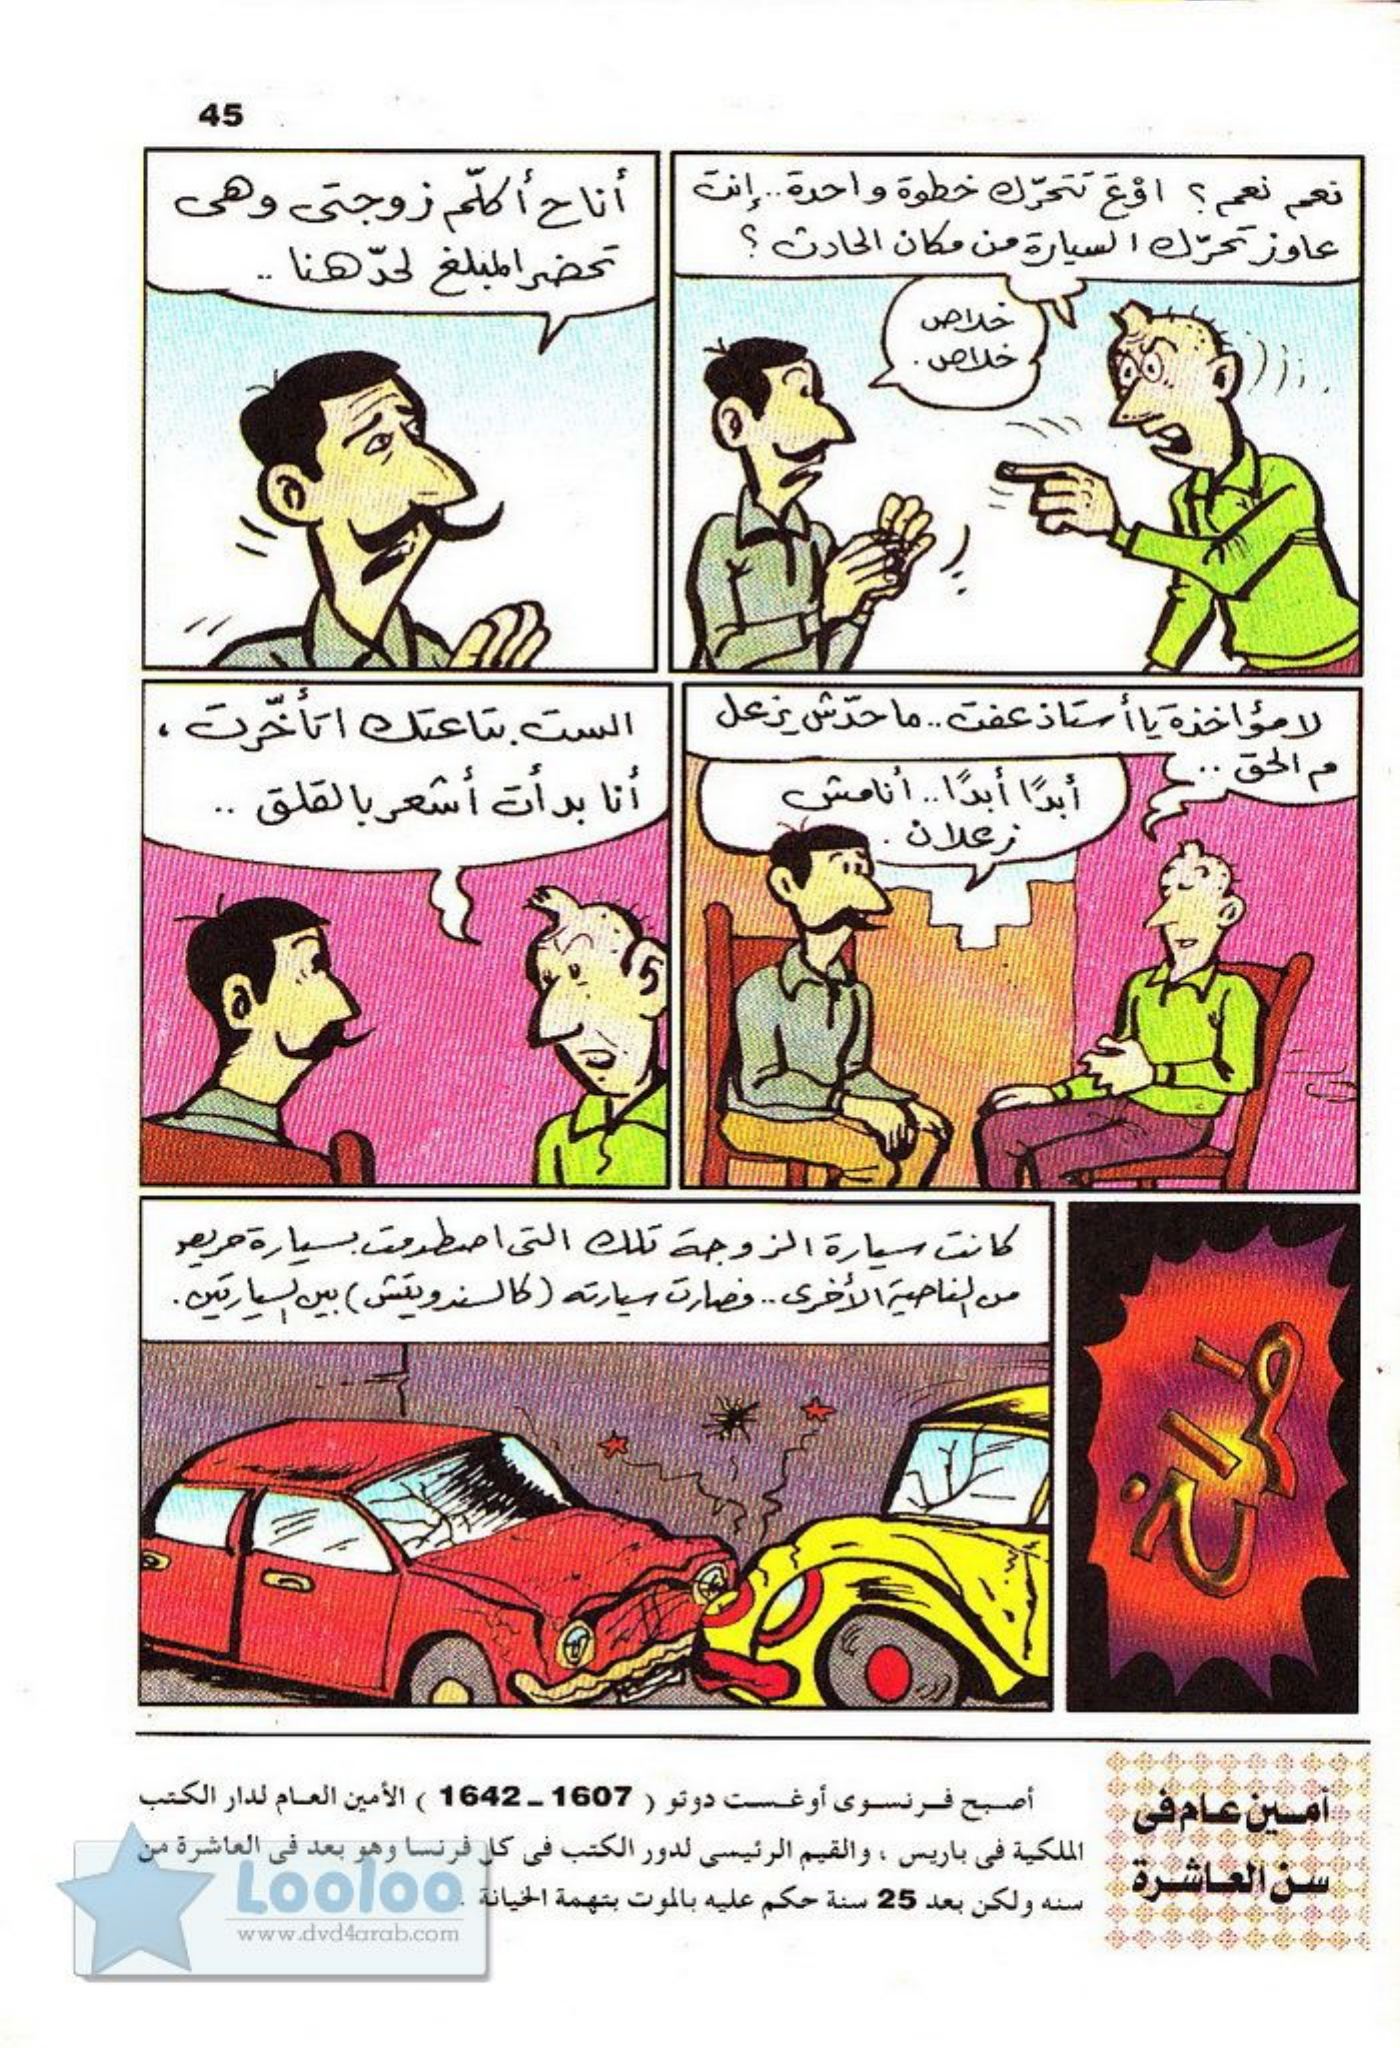 45
نعم نعم؟ اوْعَ تتحرّك خطوة واحدة.. إنت
عاوز تحرّك السيارة من مكان الحادث؟
خلاص
خلاص.
أنا ح أكلّم زوجتى وهى
تحضر المبلغ لحدّ هنا ..
لا مؤاخذة يا أستاذ عفت.. ما حدّش يزعل
م الحق ..
أبدًا أبدًا.. أنا مش
زعلان.
الست بتاعتك اتأخّرت،
أنا بدأت أشعر بالقلق ..
كانت سيارة الزوجة تلك التى اصطدمت بسيارة حريص
من الناصية الأخرى.. فصارت سيارته (كالسندوتش) بين السيارتين.
أمـين عـام فى
سن العـاشـرة
أصـبح فـرنسـوى أوغـسـت دوتو ( 1607 ـ 1642 ) الأمين العـام لدار الكـتب
الملكية فى باريس ، والقيم الرئيسى لدور الكتب فى كل فرنسا وهو بعد فى العاشرة من
سنه ولكن بعد 25 سنة حكم عليه بالموت بتهمة الخيانة .
Looloo
www.dvd4arab.com